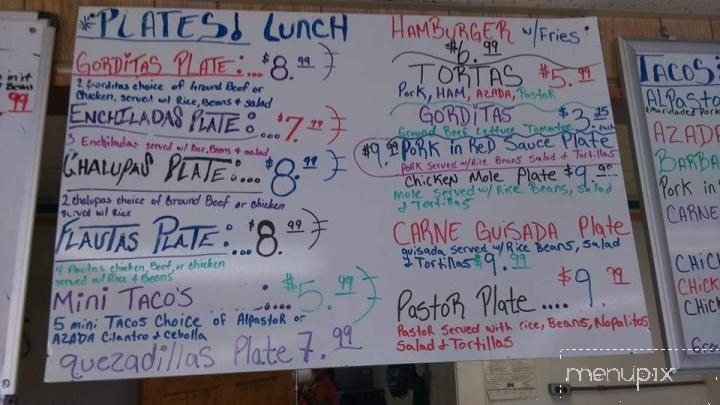 *PLATES! LUNCH
GORDITAS PLATE:... $8.99
2 Gorditas choice of Ground Beef or
Chicken, served w/ Rice, Beans & salad
ENCHILADAS PLATE:.... $7.99
3 Enchiladas served w/ Rice, Beans & salad
CHALUPAS PLATE:.... $8.99
2 chalupas choice of Ground Beef or chicken
served w/ Rice
FLAUTAS PLATE:... $8.99
4 flautas chicken, Beef, or chicken
served w/ Rice & Beans
MiNi TACO'S :.... $5.99
5 mini TACOS Choice of Alpastor or
AZADA Cilantro & Cebolla
quezadillas Plate 7.99
HAMBURGER w/Fries
$6.99
TORTAS $5.99
Pork, HAM, AZADA, Pastor
GORDITAS $3.25 each
Ground Beef Lettuce Tomatoe
$9.99 PORK in ReD Sauce Plate
PORK served w/Rice Beans Salad & Tortillas
Chicken Mole Plate $9.99
Mole Served w/ Rice Beans, Salad
& Tortillas
CARNE GUiSADA Plate
guisada served w/ Rice Beans, Salad
& Tortillas $9.99
$9.99
PastoR Plate ....
PastoR Served with rice, Beans, Nopalitos
Salad & Tortillas
in it
Beans
.99
TACOS:
ALPasto
AZADA
BARBA
Pork in
CARNE
CHiC
CHicK
CHic
Grou
menupix